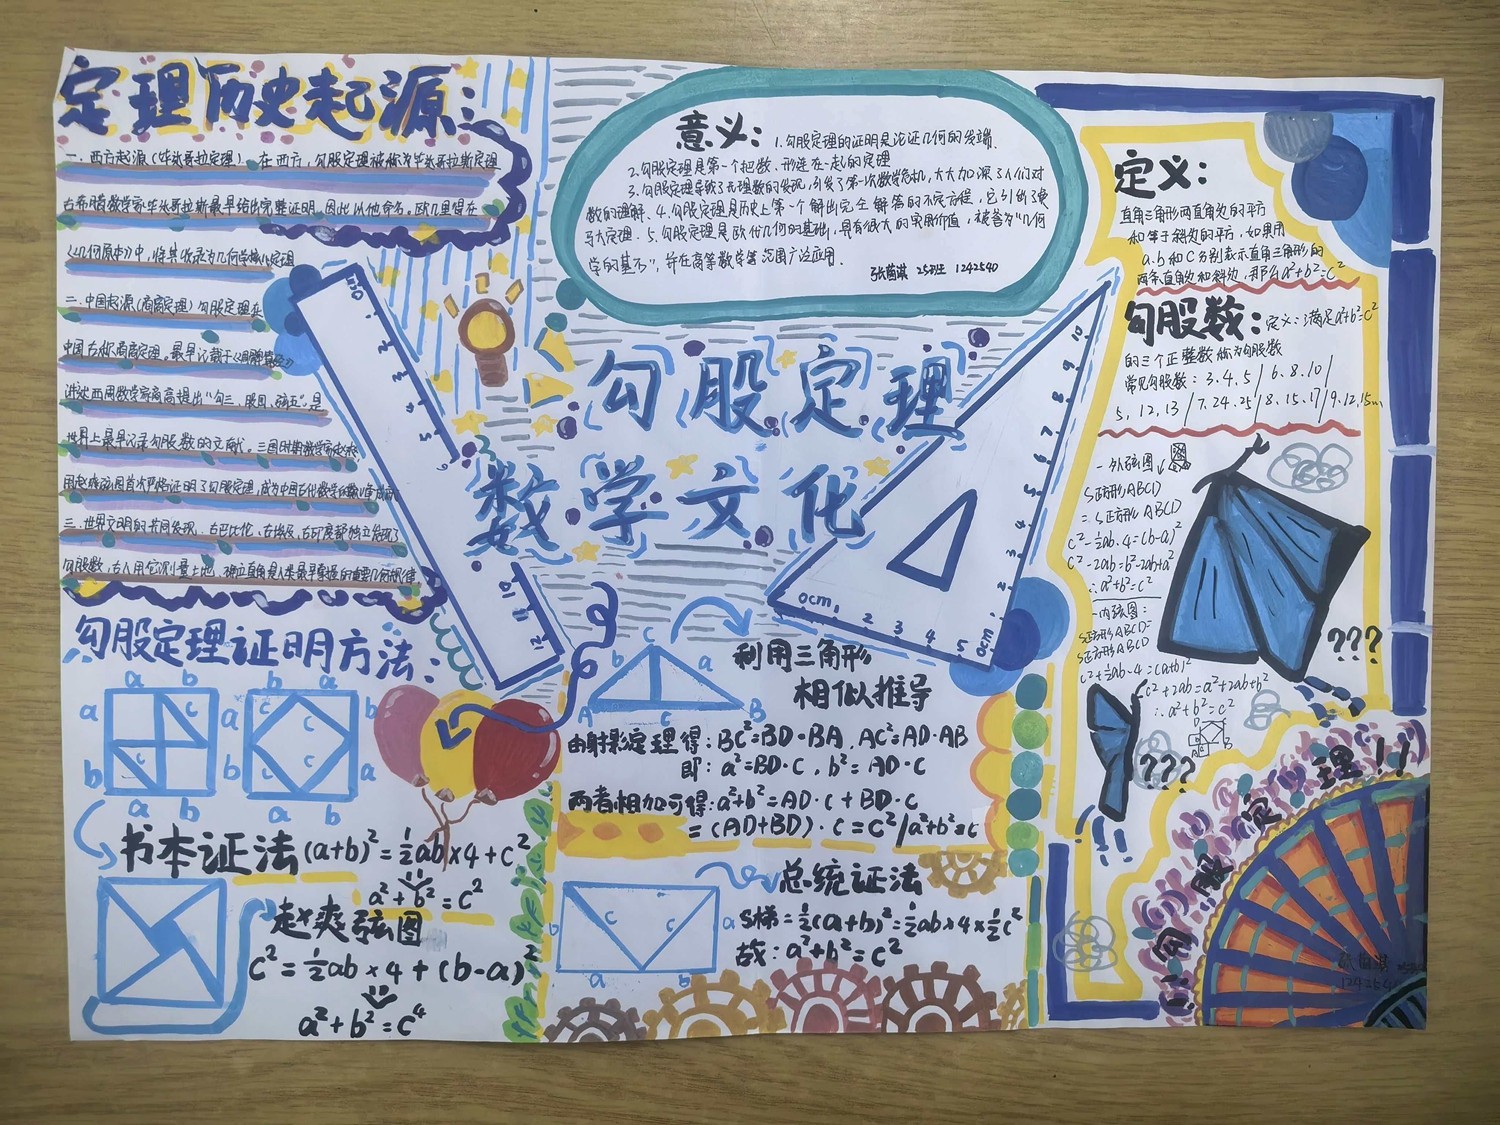 定理历史起源:
一.西方起源(毕达哥拉定理).在西方,勾股定理被称为毕达哥拉斯定理
古希腊数学家毕达哥拉斯最早给出完整证明,因此以他命名。欧几里得在
《几何原本》中,将其收录为几何学核心定理
二.中国起源(商高定理)勾股定理在
中国古称商高定理。最早记载于《周髀算经》
讲述西周数学家商高提出“勾三、股四、弦五”是
世界上最早记录勾股数的文献。三国时期数学家赵爽,
用赵爽弦图首次严格证明了勾股定理,成为中国古代数学的
三.世界文明的共同发现.古巴比伦、古埃及、古印度都独立发现了
勾股数,古人用它测量土地、确立直角是人类最早掌握的重要几何规律
意义:
1.勾股定理的证明是论证几何的发端、
2.勾股定理是第一个把数、形连在一起的定理
3.勾股定理导致了无理数的发现,引发了第一次数学危机,大大加深了人们对
数的理解、4.勾股定理是历史上第一个解出完全解答的不定方程,它引出了费
马大定理.5.勾股定理是欧氏几何的基础,具有很大的实用价值,被誉为“几何
学的基石”,并在高等数学等范围广泛应用.
25班 1242540
勾股定理
数学文化
0cm 1 2 3 4 5
0cm
定义:
直角三角形两直角边的平方
和等于斜边的平方,如果用
a.b和C分别表示直角三角形的
两条直角边和斜边,那么a²+b²=c²
勾股数:定义:满足a²+b²=c²
的三个正整数称为勾股数
常见勾股数:3.4.5/6.8.10/
5,12,13/7.24.25/8.15.17/9.12.15
一外弦图
S正方形ABCD
=S正方形ABCD
c²-½ab·4=(b-a)²
c²-2ab=b²-2ab+a²
∴a²+b²=c²
一内弦图:
S正方形ABCD=
S正方形ABCD
c²+½ab·4=(a+b)²
c²+2ab=a²+2ab+b²
∴a²+b²=c²
???
???
勾股定理!!
勾股定理证明方法:
a b a b
a c a c c b
b c b c c a
a b a b
书本证法(a+b)²=½ab×4+c²
a²+b²=c²
赵爽弦图
c²=½ab×4+(b-a)²
a²+b²=c⁴
C
b a
A c B
利用三角形
相似推导
由射影定理得:BC²=BD·BA,AC²=AD·AB
即:a²=BD·C,b²=AD·C
两者相加可得:a²+b²=AD·C+BD·C
=(AD+BD)·C=C²/a²+b²=c
总统证法
b c c a
a b
S梯=½(a+b)²=½ab×4×½c²
故:a²+b²=c²